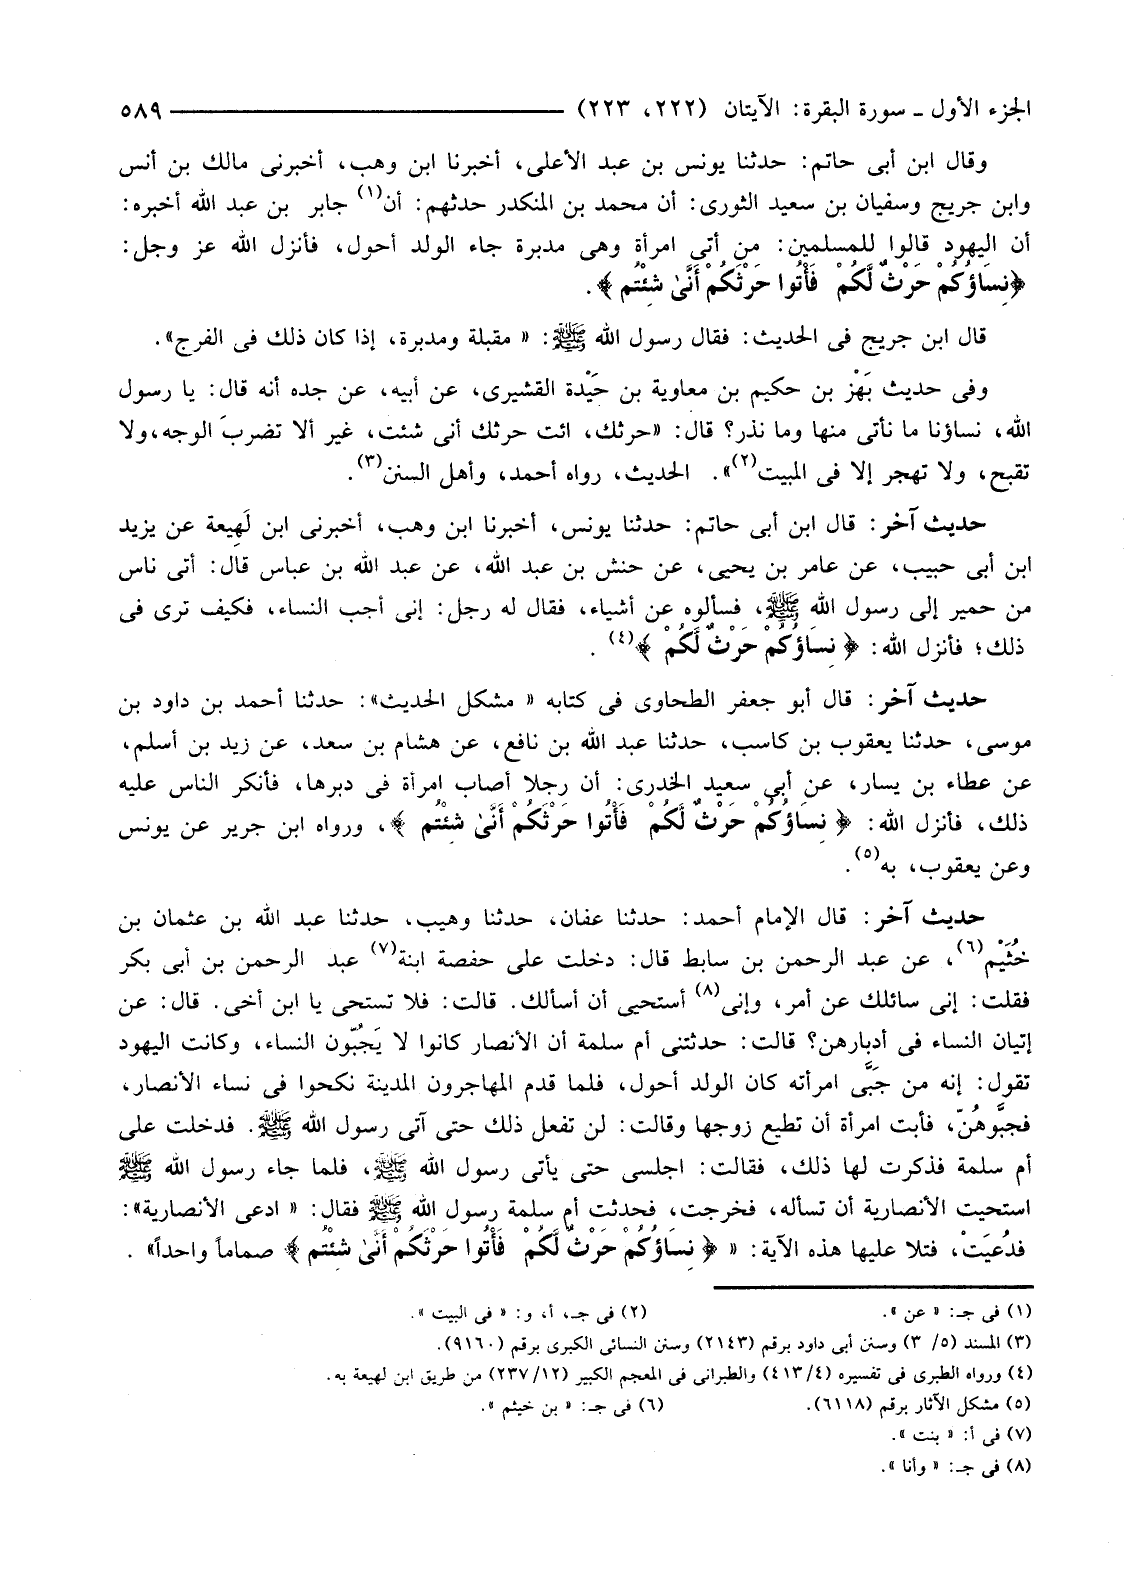 الجزء الأول ـ سورة البقرة: الآيتان (٢٢٢، ٢٢٣) ــــــــــــــــــــــــــــ ٥٨٩
وقال ابن أبى حاتم: حدثنا يونس بن عبد الأعلى، أخبرنا ابن وهب، أخبرنى مالك بن أنس
وابن جريج وسفيان بن سعيد الثورى: أن محمد بن المنكدر حدثهم: أن(١) جابر بن عبد الله أخبره:
أن اليهود قالوا للمسلمين: من أتى امرأة وهى مدبرة جاء الولد أحول، فأنزل الله عز وجل:
﴿نِسَاؤُكُمْ حَرْثٌ لَّكُمْ فَأْتُوا حَرْثَكُمْ أَنَّىٰ شِئْتُم﴾.
قال ابن جريج فى الحديث: فقال رسول الله ﷺ: « مقبلة ومدبرة، إذا كان ذلك فى الفرج».
وفى حديث بَهْز بن حكيم بن معاوية بن حَيْدة القشيرى، عن أبيه، عن جده أنه قال: يا رسول
الله، نساؤنا ما نأتى منها وما نذر؟ قال: «حرثك، ائت حرثك أنى شئت، غير ألا تضربَ الوجه،ولا
تقبح، ولا تهجر إلا فى المبيت(٢)». الحديث، رواه أحمد، وأهل السنن(٣).
حديث آخر: قال ابن أبى حاتم: حدثنا يونس، أخبرنا ابن وهب، أخبرنى ابن لَهِيعة عن يزيد
ابن أبى حبيب، عن عامر بن يحيى، عن حنش بن عبد الله، عن عبد الله بن عباس قال: أتى ناس
من حمير إلى رسول الله ﷺ، فسألوه عن أشياء، فقال له رجل: إنى أجب النساء، فكيف ترى فى
ذلك؛ فأنزل الله: ﴿ نِسَاؤُكُمْ حَرْثٌ لَّكُمْ ﴾(٤) .
حديث آخر: قال أبو جعفر الطحاوى فى كتابه « مشكل الحديث»: حدثنا أحمد بن داود بن
موسى، حدثنا يعقوب بن كاسب، حدثنا عبد الله بن نافع، عن هشام بن سعد، عن زيد بن أسلم،
عن عطاء بن يسار، عن أبى سعيد الخدرى: أن رجلا أصاب امرأة فى دبرها، فأنكر الناس عليه
ذلك، فأنزل الله: ﴿ نِسَاؤُكُمْ حَرْثٌ لَّكُمْ فَأْتُوا حَرْثَكُمْ أَنَّىٰ شِئْتُم ﴾، ورواه ابن جرير عن يونس
وعن يعقوب، به(٥).
حديث آخر: قال الإمام أحمد: حدثنا عفان، حدثنا وهيب، حدثنا عبد الله بن عثمان بن
خُثَيْم(٦)، عن عبد الرحمن بن سابط قال: دخلت على حفصة ابنة(٧) عبد الرحمن بن أبى بكر
فقلت: إنى سائلك عن أمر، وإنى(٨) أستحيى أن أسألك. قالت: فلا تستحى يا ابن أخى. قال: عن
إتيان النساء فى أدبارهن؟ قالت: حدثتنى أم سلمة أن الأنصار كانوا لا يَجُبّون النساء، وكانت اليهود
تقول: إنه من جَبَّى امرأته كان الولد أحول، فلما قدم المهاجرون المدينة نكحوا فى نساء الأنصار،
فجبَّوهُنّ، فأبت امرأة أن تطيع زوجها وقالت: لن تفعل ذلك حتى آتى رسول الله ﷺ. فدخلت على
أم سلمة فذكرت لها ذلك، فقالت: اجلسى حتى يأتى رسول الله ﷺ، فلما جاء رسول الله ﷺ
استحيت الأنصارية أن تسأله، فخرجت، فحدثت أم سلمة رسول الله ﷺ فقال: « ادعى الأنصارية»:
فدُعيَتْ، فتلا عليها هذه الآية: « ﴿ نِسَاؤُكُمْ حَرْثٌ لَّكُمْ فَأْتُوا حَرْثَكُمْ أَنَّىٰ شِئْتُم ﴾ صماماً واحداً» .
(١) فى جـ: « عن ». (٢) فى جـ، أ، و: « فى البيت ».
(٣) المسند (٥/ ٣) وسنن أبى داود برقم (٢١٤٣) وسنن النسائى الكبرى برقم (٩١٦٠).
(٤) ورواه الطبرى فى تفسيره (٤١٣/٤) والطبرانى فى المعجم الكبير (٢٣٧/١٢) من طريق ابن لهيعة به.
(٥) مشكل الآثار برقم (٦١١٨). (٦) فى جـ: « بن خيثم ».
(٧) فى أ: « بنت ».
(٨) فى جـ: « وأنا ».